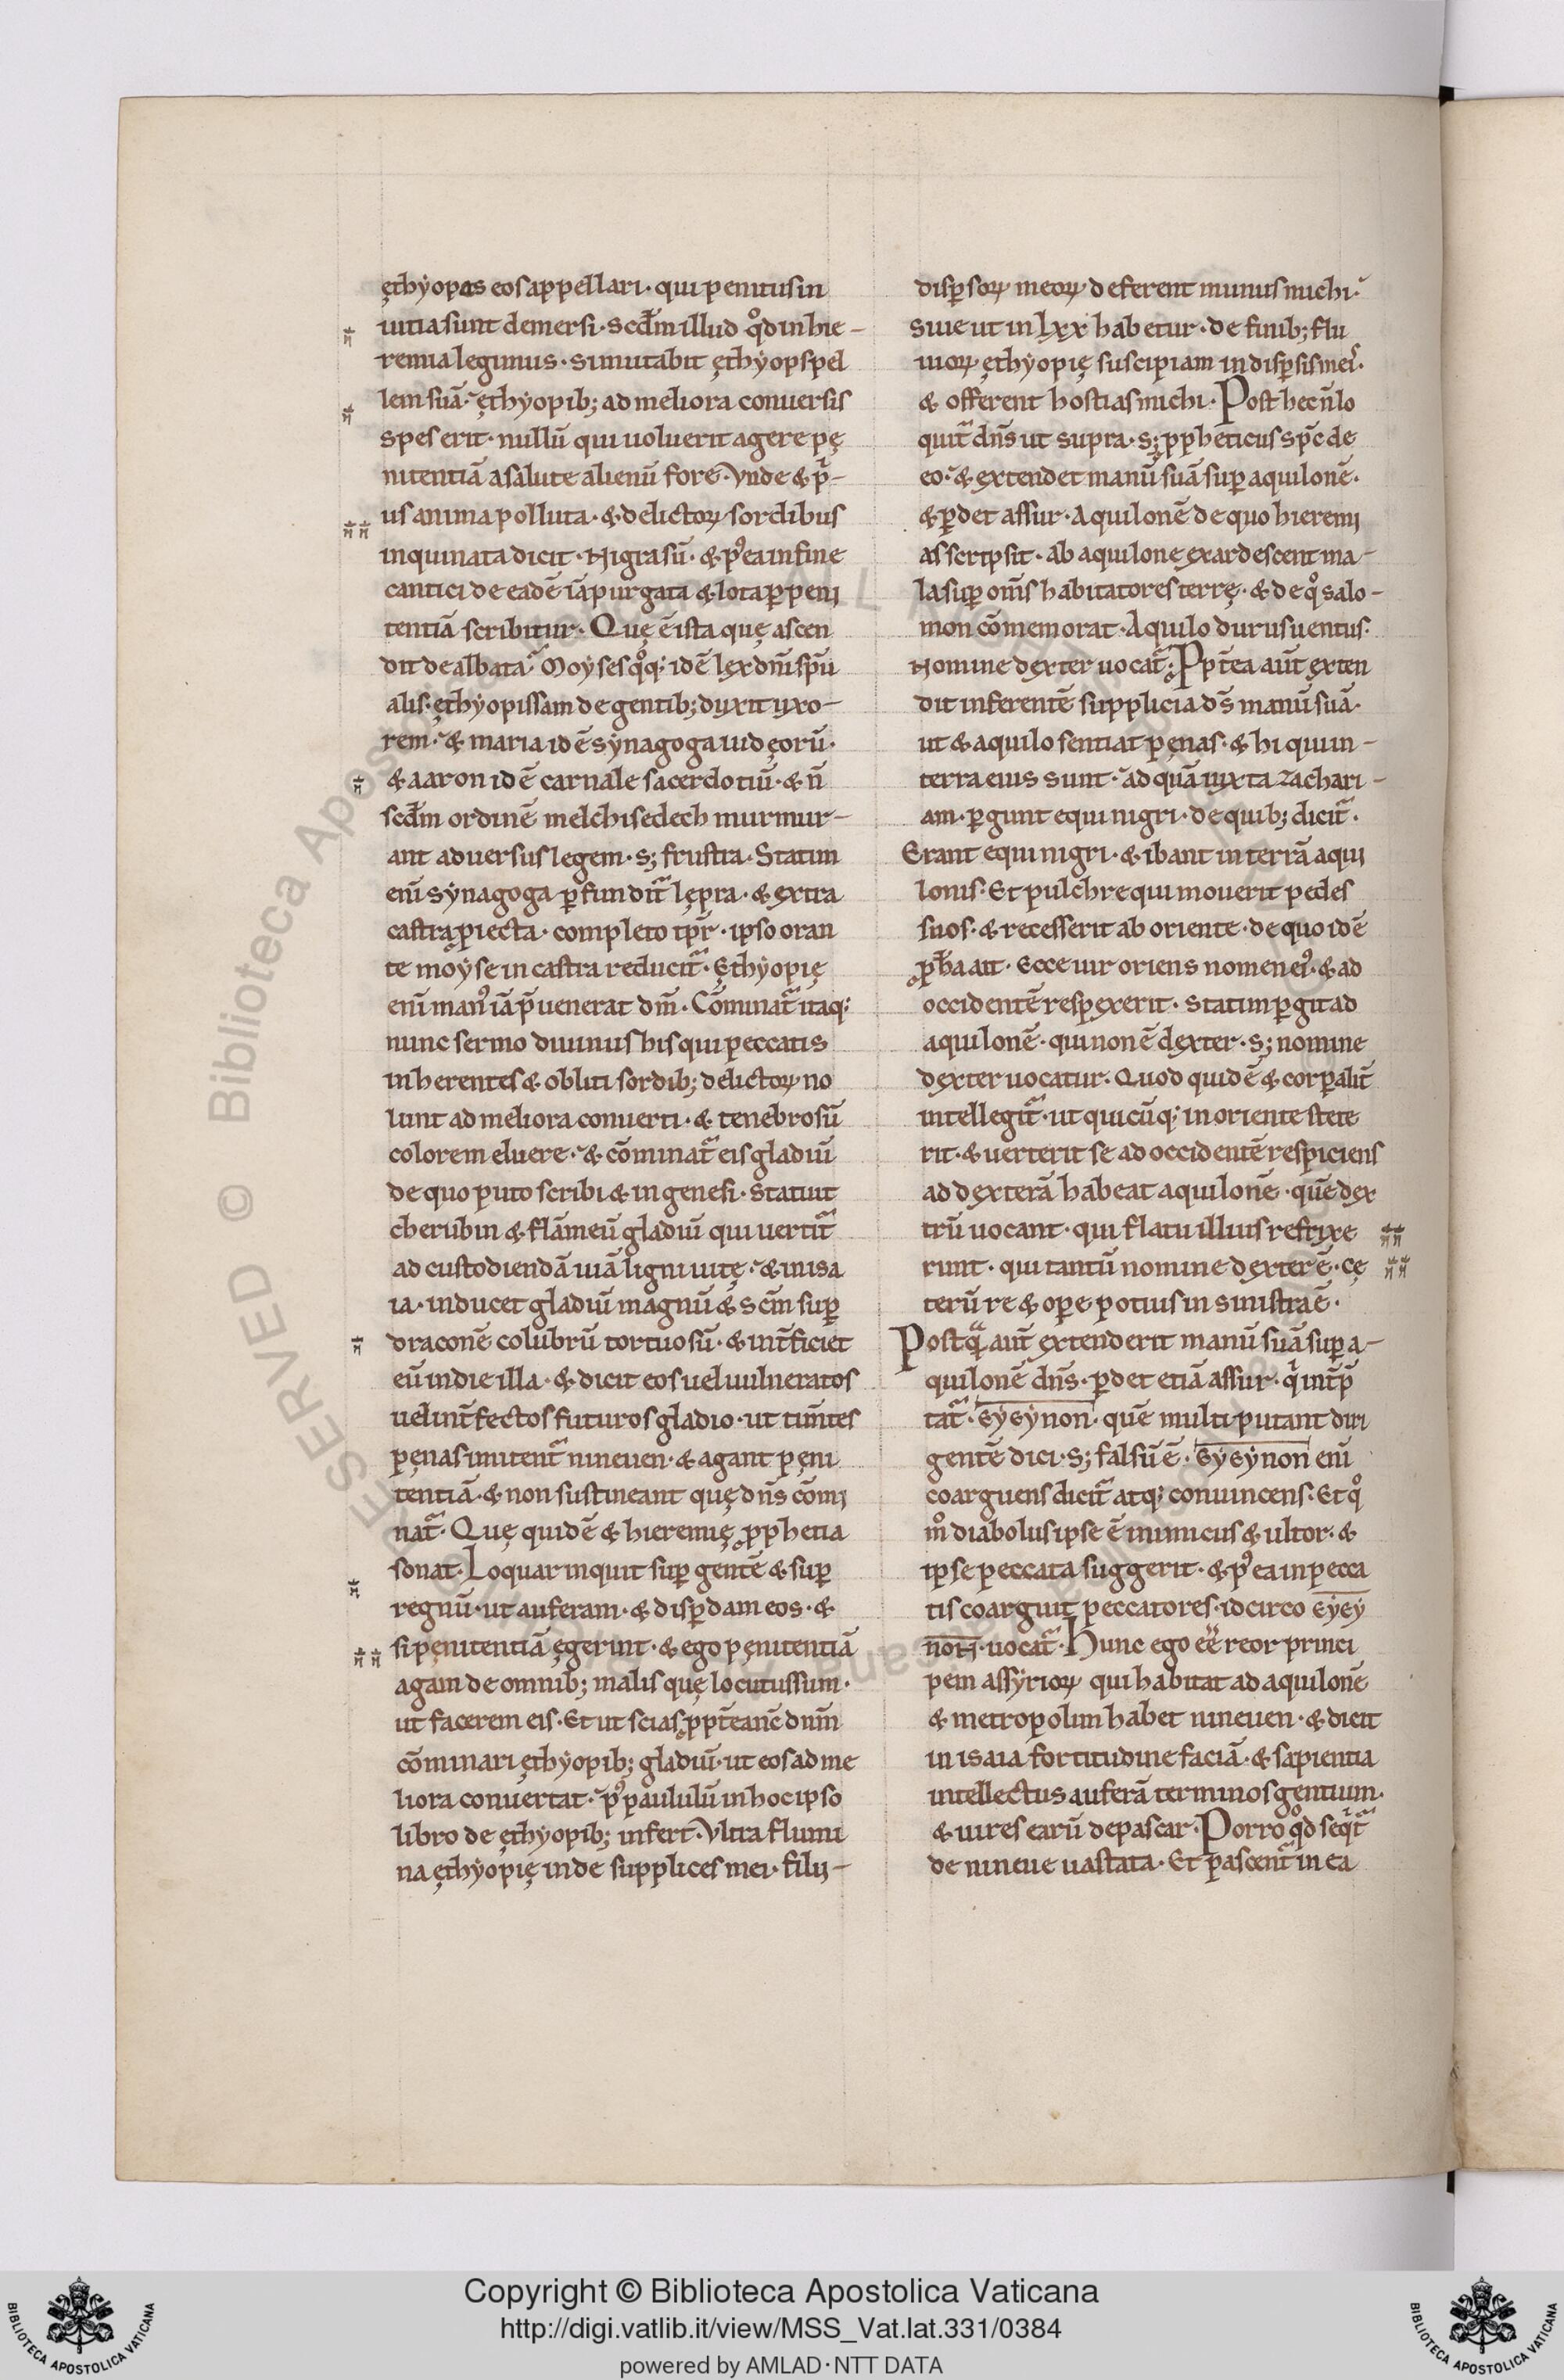 ęthyopas eos appellari· qui penitus in
uitia sunt demersi· scd̄m illud qd̊ in hie-
remia legimus· Si mutabit ęthyops pel
lem suā· ęthyopib; ad meliora conuersis
spes erit· nullū qui uoluerit agere pę
nitentiā a salute alienū fore· Vnde & pͥ-
us anima polluta· & delictoꝝ sordibus
inquinata dicit· Nigra sū· & pꝰea in fine
cantici de eadē iā purgata & lota ꝑ peni
tentiā scribitur· Quę ē ista quę ascen
dit dealbata· Moyses qͦqꝫ idē lex dn̄i spū
alis· ęthyopissam de gentib; duxit uxo-
rem· & maria idē synagoga iudęorū·
& aaron idē carnale sacerdotiū· & n̄
scd̄m ordinē melchisedech murmur-
ant aduersus legem· s; frustra· Statim
eni̅ synagoga ꝑfundit᷑ lępra· & extra
castra ꝓiecta· completo tp̄r· ipso oran
te moyse in castra reducit᷑· Ęthyopię
eni̅ manꝰ iā p̄uenerat dm̄· Cōminat᷑ itaqꝫ
nunc sermo diuinus his qui peccatis
inherentes & obliti sordib; delictoꝝ no
lunt ad meliora conuerti· & tenebrosū
colorem eluere· & cōminat᷑ eis gladiū
de quo puto scribi & in genesi· Statuit
cherubin & flāmeū gladiū qui uertit᷑
ad custodiendā uiā ligni uitę· & in isa
ia· inducet gladiū magnū & sc̄m suꝑ
draconē colubrū tortuosū· & int̄ficiet
eū in die illa· & dicit eos uel uulneratos
uel int̄fectos futuros gladio· ut tim̄tes
penas imitent᷑ nineuen· & agant pęni
tentiā· & non sustineant quę dn̄s cōmi
nat᷑· Quę quidē & hieremię ꝓphetia
sonat· Loquar inquit suꝑ gentē & suꝑ
regnū· ut auferam· & disꝑdam eos· &
si pęnitentiā ęgerint· & ego pęnitentiā
agam de omnib; malis quę locutus sum·
ut facerem eis· Et ut scias ꝓpt̄ea nc̄ dnm̄
cōminari ęthyopib; gladiū· ut eos ad me
liora conuertat· pꝰ paululū in hoc ipso
libro de ęthyopib; infert· Vltra flumi
na ęthyopię inde supplices mei· filii-
disꝑsoꝝ meoꝝ deferent munus michi·
Siue ut in lxx habetur· de finib; flu
uioꝝ ęthyopię suscipiam in disꝑsis meis·
& offerent hostias michi· Post hec n̄ lo
quit᷑ dn̄s ut supra· s; ꝓpheticus sp̄c de
eo· & extendet manū suā suꝑ aquilonē·
& ꝑdet assur· Aquilonē de quo hieremi
as scripsit· ab aquilone exardescent ma-
la suꝑ om̄s habitatores terrę· & de qͦ salo-
mon cōmemorat· Aquilo durus uentus·
Nomine dexter uocat᷑· Ꝓpt̄ea aut̄ exten
dit inferentē supplicia ds̄ manū suā·
ut & aquilo sentiat pęnas· & hi qui in-
terra eius sunt· ad quā iuxta zachari-
am· ꝑgunt equi nigri· de quib; dicit᷑·
Erant equi nigri· & ibant in terrā aqui
lonis· Et pulchre qui mouerit pedes
suos· & recesserit ab oriente· de quo idē
ꝓpha ait· Ecce uir oriens nomen eiꝰ· & ad
occidentē respexerit· statim ꝑgit ad
aquilonē· qui non ē dexter· s; nomine
dexter uocatur· Quod quidē & corꝑalit̄
intellegit᷑· ut quicūqꝫ in oriente stete
rit· & uerterit se ad occidentē respiciens
ad dexterā habeat aquilonē· quē dex
trū uocant· qui flatu illius refrixe
runt· qui tantū nomine dexter ē· cę
terū re & oꝑe potius in sinistra ē·
Postqͣ aut̄ extenderit manū suā suꝑ a-
quilonē dn̄s· ꝑdet etiā assur· qͥ int̄p̄
tat᷑· EYEYNON· quē multi putant diri
gentē dici· s; falsū ē· EYEYNON eni̅
coarguens dicit᷑ atqꝫ conuincens· Et qͦ
mͦ diabolus ipse ē inimicus & ultor· &
ipse peccata suggerit· & pꝰea in pecca
tis coarguit peccatores· idcirco EYEY
NON· uocat᷑· Hunc ego ēē reor princi
pem assyrioꝝ qui habitat ad aquilonē
& metropolim habet nineuen· & dicit
in isaia fortitudine faciā· & sapientia
intellectus auferā terminos gentium·
& uires earū depascar· Porro qd̊ seqͥt᷑
de nineue uastata· Et pascent᷑ in ea
Copyright © Biblioteca Apostolica Vaticana
http://digi.vatlib.it/view/MSS_Vat.lat.331/0384
powered by AMLAD·NTT DATA
BIBLIOTECA APOSTOLICA VATICANA
BIBLIOTECA APOSTOLICA VATICANA